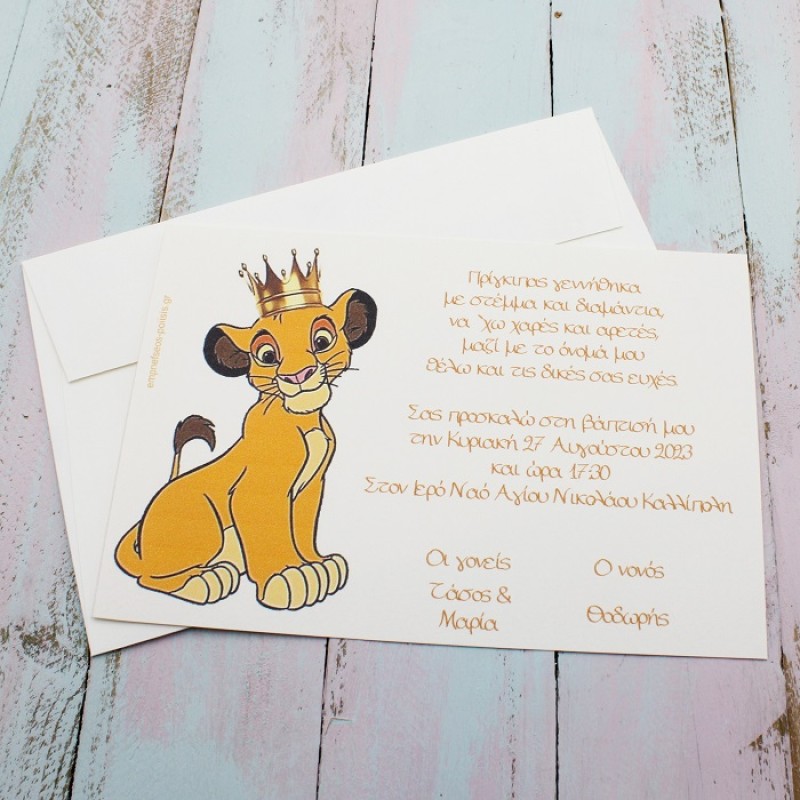 Πρίγκιπας γεννήθηκα
με στέμμα και διαμάντια,
να 'χω χαρές και αρετές,
μαζί με το όνομά μου
θέλω και τις δικές σας ευχές.
Σας προσκαλώ στη βάπτισή μου
την Κυριακή 27 Αυγούστου 2023
και ώρα 17:30
Στον Ιερό Ναό Αγίου Νικολάου Καλλίπολη
Οι γονείς
Τάσος &
Μαρία
Ο νονός
Θοδωρής
empnefseos-poiisis.gr